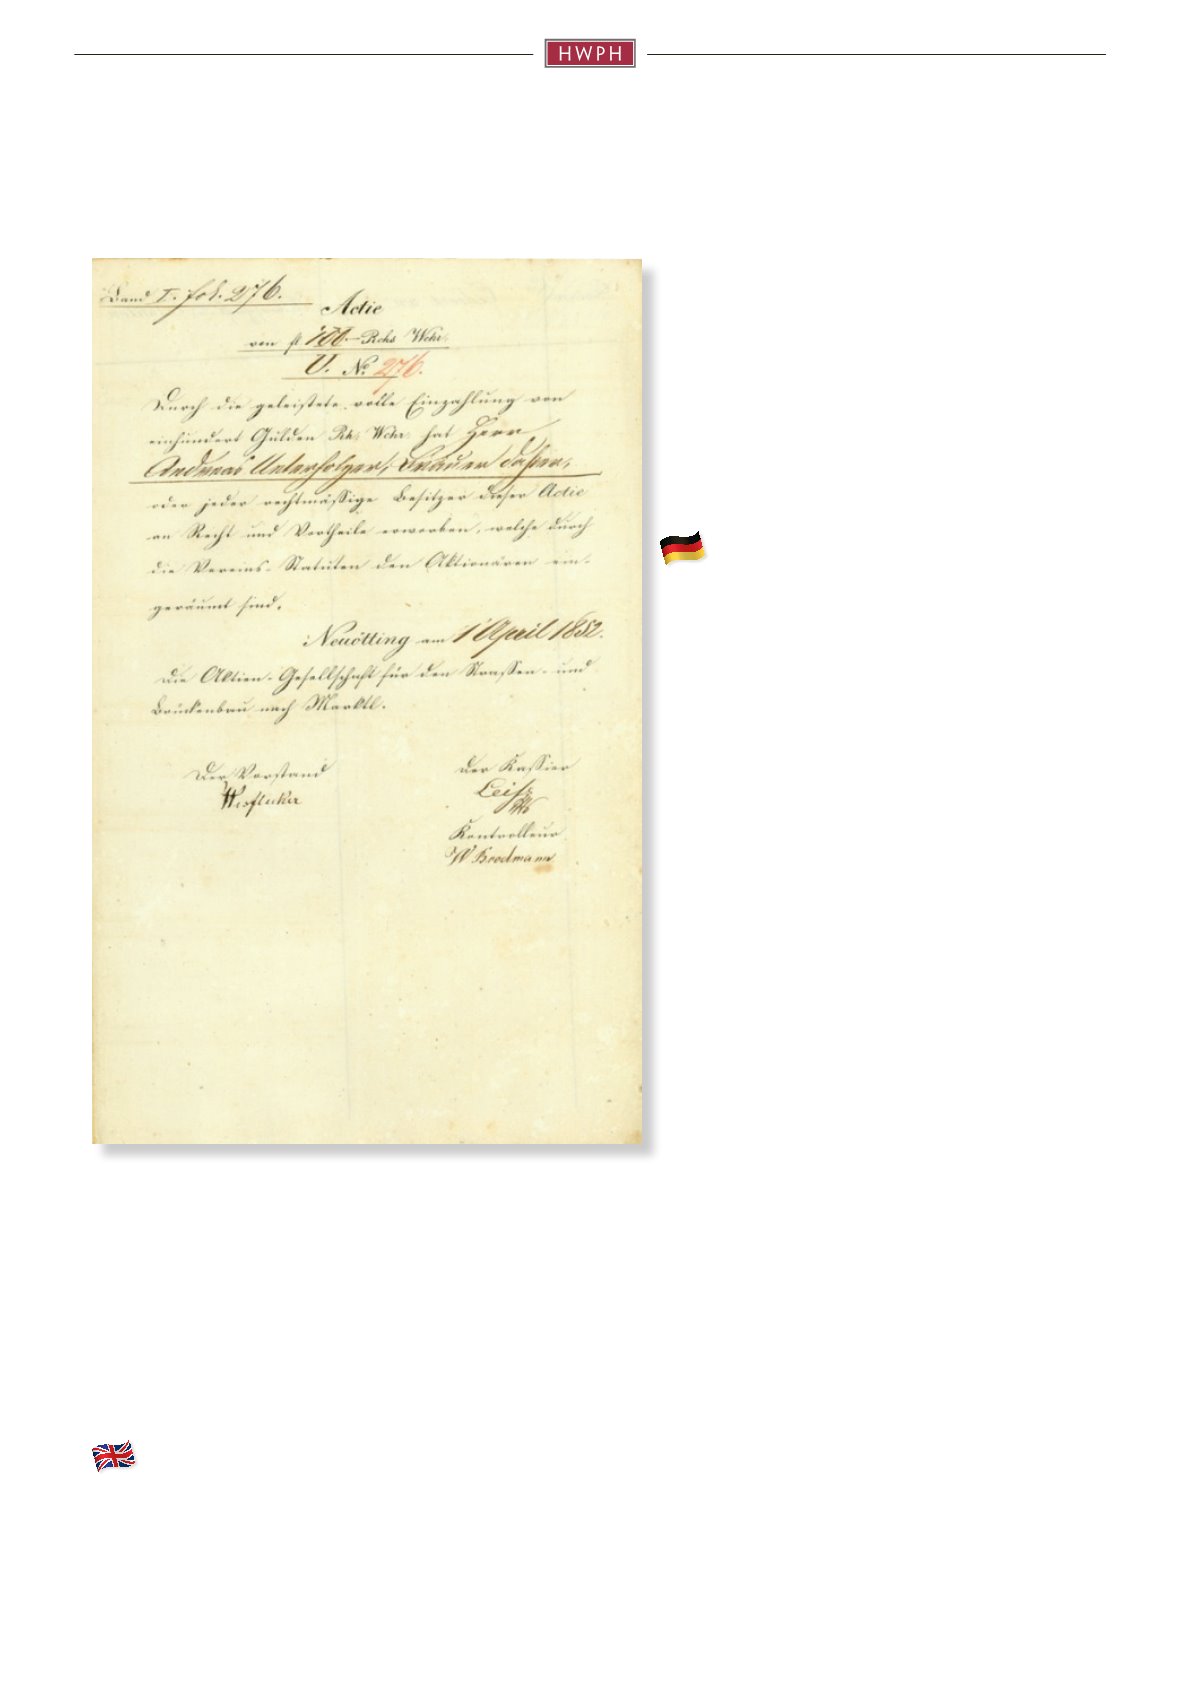 HWPH
Band I. fol. 276.
Actie
von fl 100.- Rchs Whr.
V. No. 276.
Durch die geleistete volle Einzahlung von
einhundert Gulden Rhs Whr. hat Herr
Andreas Unterholzer, Bräuer dahier,
oder jeder rechtmässige Besitzer dieser Actie
an Recht und Vortheile erworben, welche durch
die Vereins-Statuten den Aktionären ein-
geräumt sind.
Neuötting am 1 April 1852.
Die Aktien-Gesellschaft für den Strassen- und
Brückenbau nach Marktl.
Der Vorstand
der Kassier
Kontrolleur